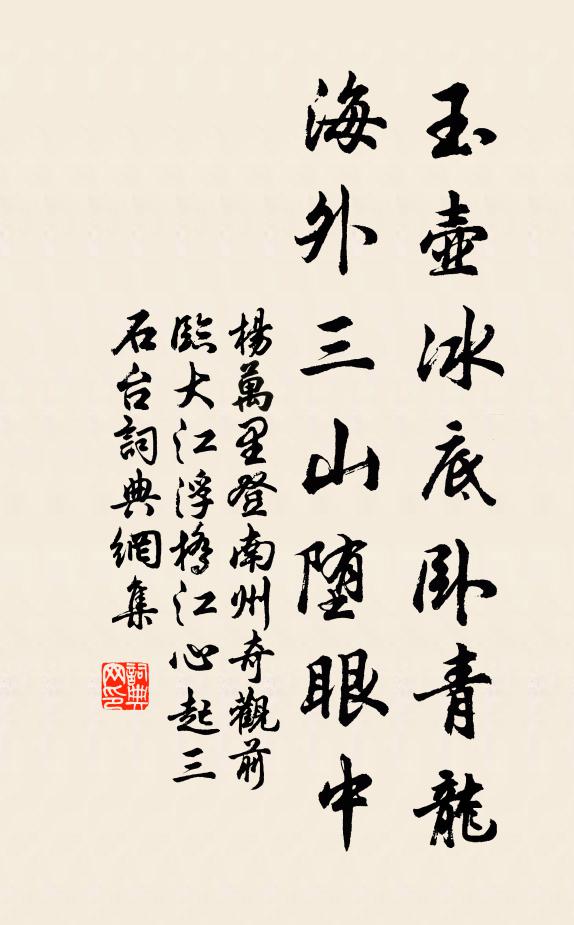 玉壺冰底卧青龍
海外三山堕眼中
楊萬里登南州奇觀前
臨大江浮橋江心起三
石台詞典網集
詞典
网印